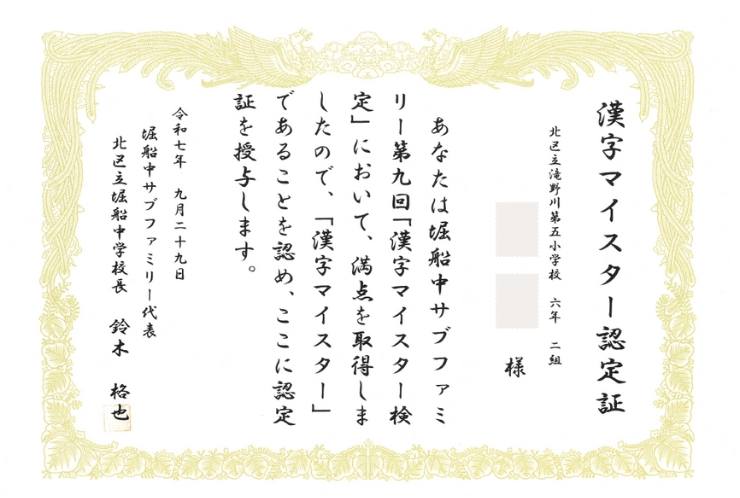 漢字マイスター認定証
北区立滝野川第五小学校 六年 二組
様
あなたは堀船中サブファミ
リー第九回「漢字マイスター検
定」において、満点を取得しま
したので、「漢字マイスター」
であることを認め、ここに認定
証を授与します。
令和七年 九月二十九日
堀船中サブファミリー代表
北区立堀船中学校長 鈴木 格也